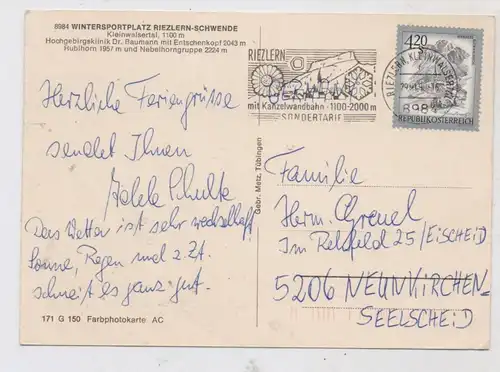 8984 WINTERSPORTPLATZ RIEZLERN-SCHWENDE
Kleinwalsertal, 1100 m
Hochgebirgsklinik Dr. Baumann mit Entschenkopf 2043 m
Rubihorn 1957 m und Nebelhorngruppe 2224 m
Herzliche Feriengrüsse
sendet Ihnen
Adele Schulte
Das Wetter ist sehr wechselhaft
Sonne, Regen und z.Zt.
schneit es ganz gut.
171 G 150 Farbphotokarte AC
Gebr. Metz, Tübingen
RIEZLERN
mit Kanzelwandbahn · 1100-2000 m
SONDERTARIF
RIEZLERN, KLEINWALSERTAL
4.20
REPUBLIK ÖSTERREICH
Familie
Herm. Greuel
Im Rehfeld 25/EISCHEID
5206 NEUNKIRCHEN-
SEELSCHEID